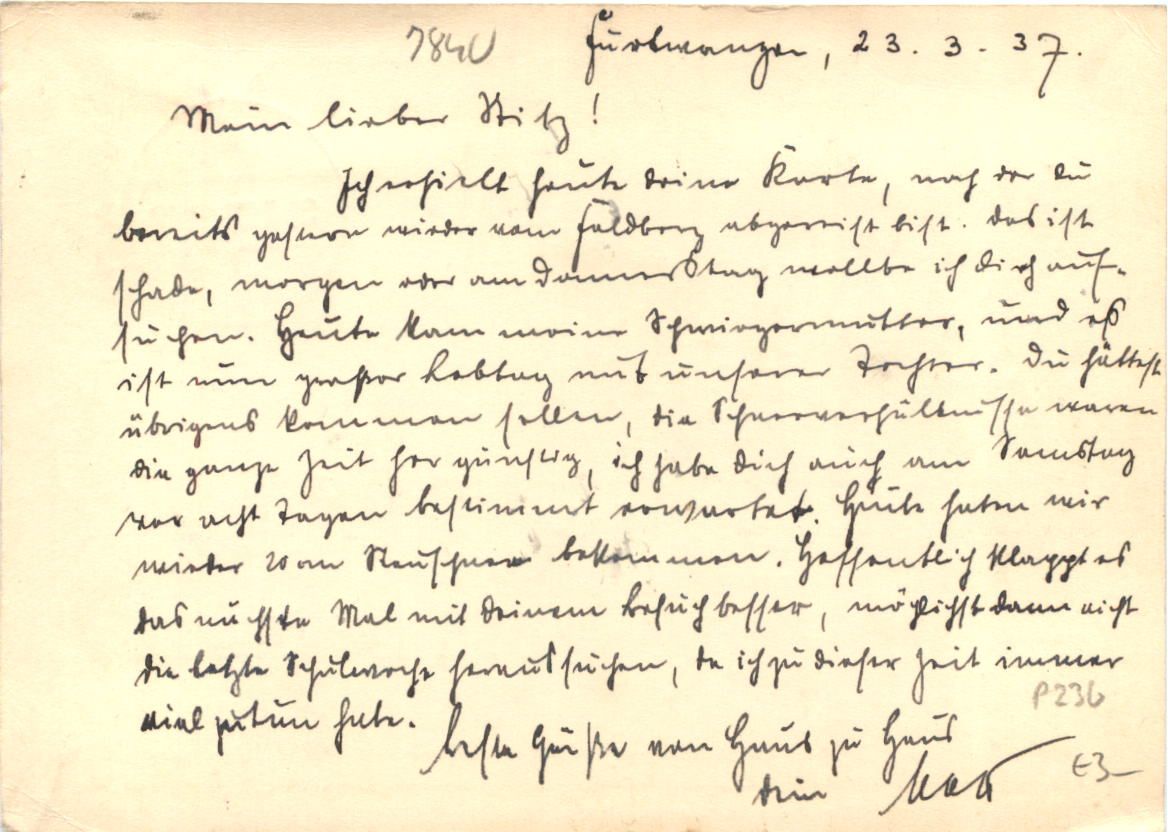 7840
Furtwangen, 23. 3. 37.
Mein lieber
Ich erhielt heute deine Karte, nach der du
bereits gestern wieder vom Feldberg abgereist bist. das ist
schade, morgen oder am Donnerstag wollte ich dich auf-
suchen. Heute kam meine Schwiegermutter, und es
ist nun großer Lebtag mit unserer Tochter. Du hättest
übrigens kommen sollen, die Schneeverhältnisse waren
die ganze Zeit her günstig, ich habe dich auch am Samstag
vor acht Tagen bestimmt erwartet. Heute haben wir
wieder 20 cm Neuschnee bekommen. Hoffentlich klappt es
das nächste Mal mit deinem Besuch besser, möglichst dann nicht
die letzte Schulwoche heraussuchen, da ich zu dieser Zeit immer
viel zu tun habe.
Beste Grüße von Haus zu Haus
dein
P236
€3-